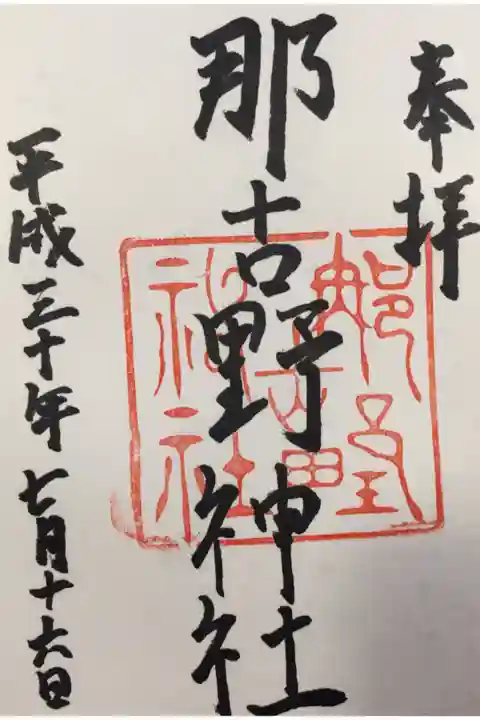 奉拝
那古野神社
平成三十年七月十六日